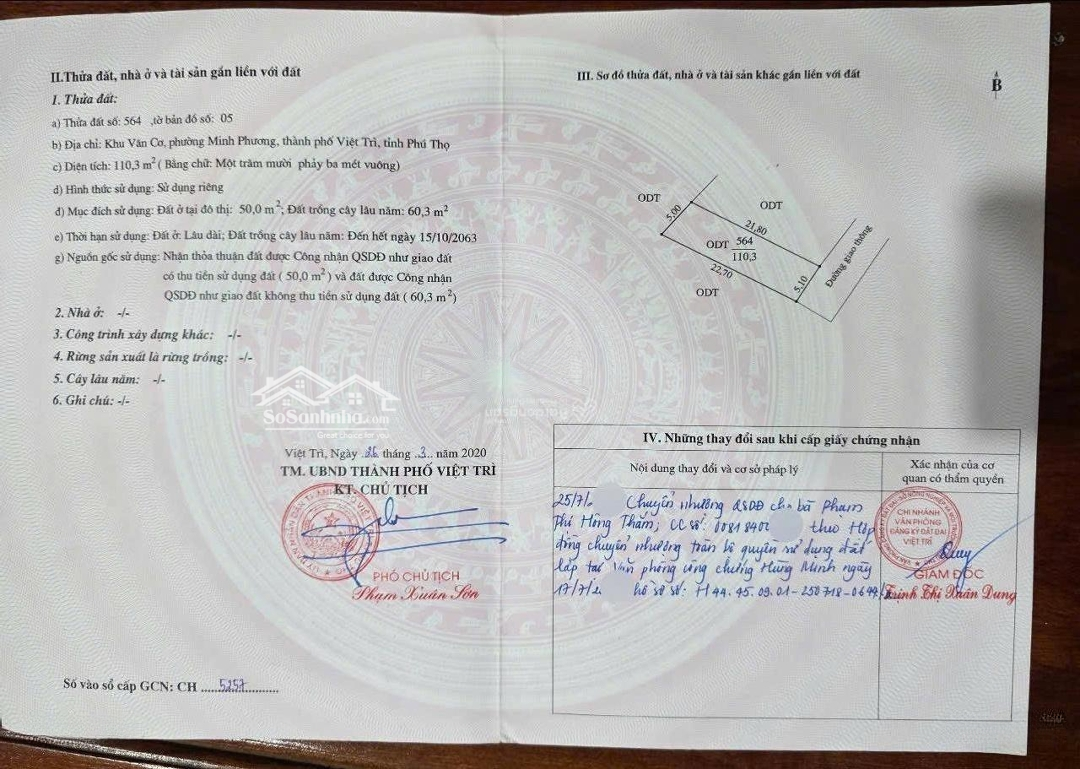 II.Thửa đất, nhà ở và tài sản gắn liền với đất
1. Thửa đất:
a) Thửa đất số: 564 ,tờ bản đồ số: 05
b) Địa chỉ: Khu Vân Cơ, phường Minh Phương, thành phố Việt Trì, tỉnh Phú Thọ
c) Diện tích: 110,3 m² ( Bằng chữ: Một trăm mười phảy ba mét vuông)
d) Hình thức sử dụng: Sử dụng riêng
đ) Mục đích sử dụng: Đất ở tại đô thị: 50,0 m²; Đất trồng cây lâu năm: 60,3 m²
e) Thời hạn sử dụng: Đất ở: Lâu dài; Đất trồng cây lâu năm: Đến hết ngày 15/10/2063
g) Nguồn gốc sử dụng: Nhận thỏa thuận đất được Công nhận QSDĐ như giao đất
có thu tiền sử dụng đất ( 50,0 m²) và đất được Công nhận
QSDĐ như giao đất không thu tiền sử dụng đất ( 60,3 m²)
2. Nhà ở: -/-
3. Công trình xây dựng khác: -/-
4. Rừng sản xuất là rừng trồng: -/-
5. Cây lâu năm: -/-
6. Ghi chú: -/-
SoSanhnha.com
Việt Trì, Ngày 26 tháng 3 năm 2020
TM. UBND THÀNH PHỐ VIỆT TRÌ
KT. CHỦ TỊCH
PHÓ CHỦ TỊCH
Phạm Xuân Sơn
Số vào sổ cấp GCN: CH 5257
III. Sơ đồ thửa đất, nhà ở và tài sản khác gắn liền với đất
B
ODT
ODT
5,00
21,80
ODT 564
110,3
22,70
5,10
Đường giao thông
ODT
IV. Những thay đổi sau khi cấp giấy chứng nhận
Nội dung thay đổi và cơ sở pháp lý
Xác nhận của cơ
quan có thẩm quyền
25/7/ Chuyển nhượng QSDĐ cho bà Phạm
Thị Hồng Thắm; CC số: 0081840 theo Hợp
đồng chuyển nhượng toàn bộ quyền sử dụng đất
lập tại Văn phòng công chứng Hùng Minh ngày
17/7/ hồ sơ số: H44.45.09.01-250718-0644
CHI NHÁNH
VĂN PHÒNG
ĐĂNG KÝ ĐẤT ĐAI
VIỆT TRÌ
GIÁM ĐỐC
Trịnh Thị Xuân Dung